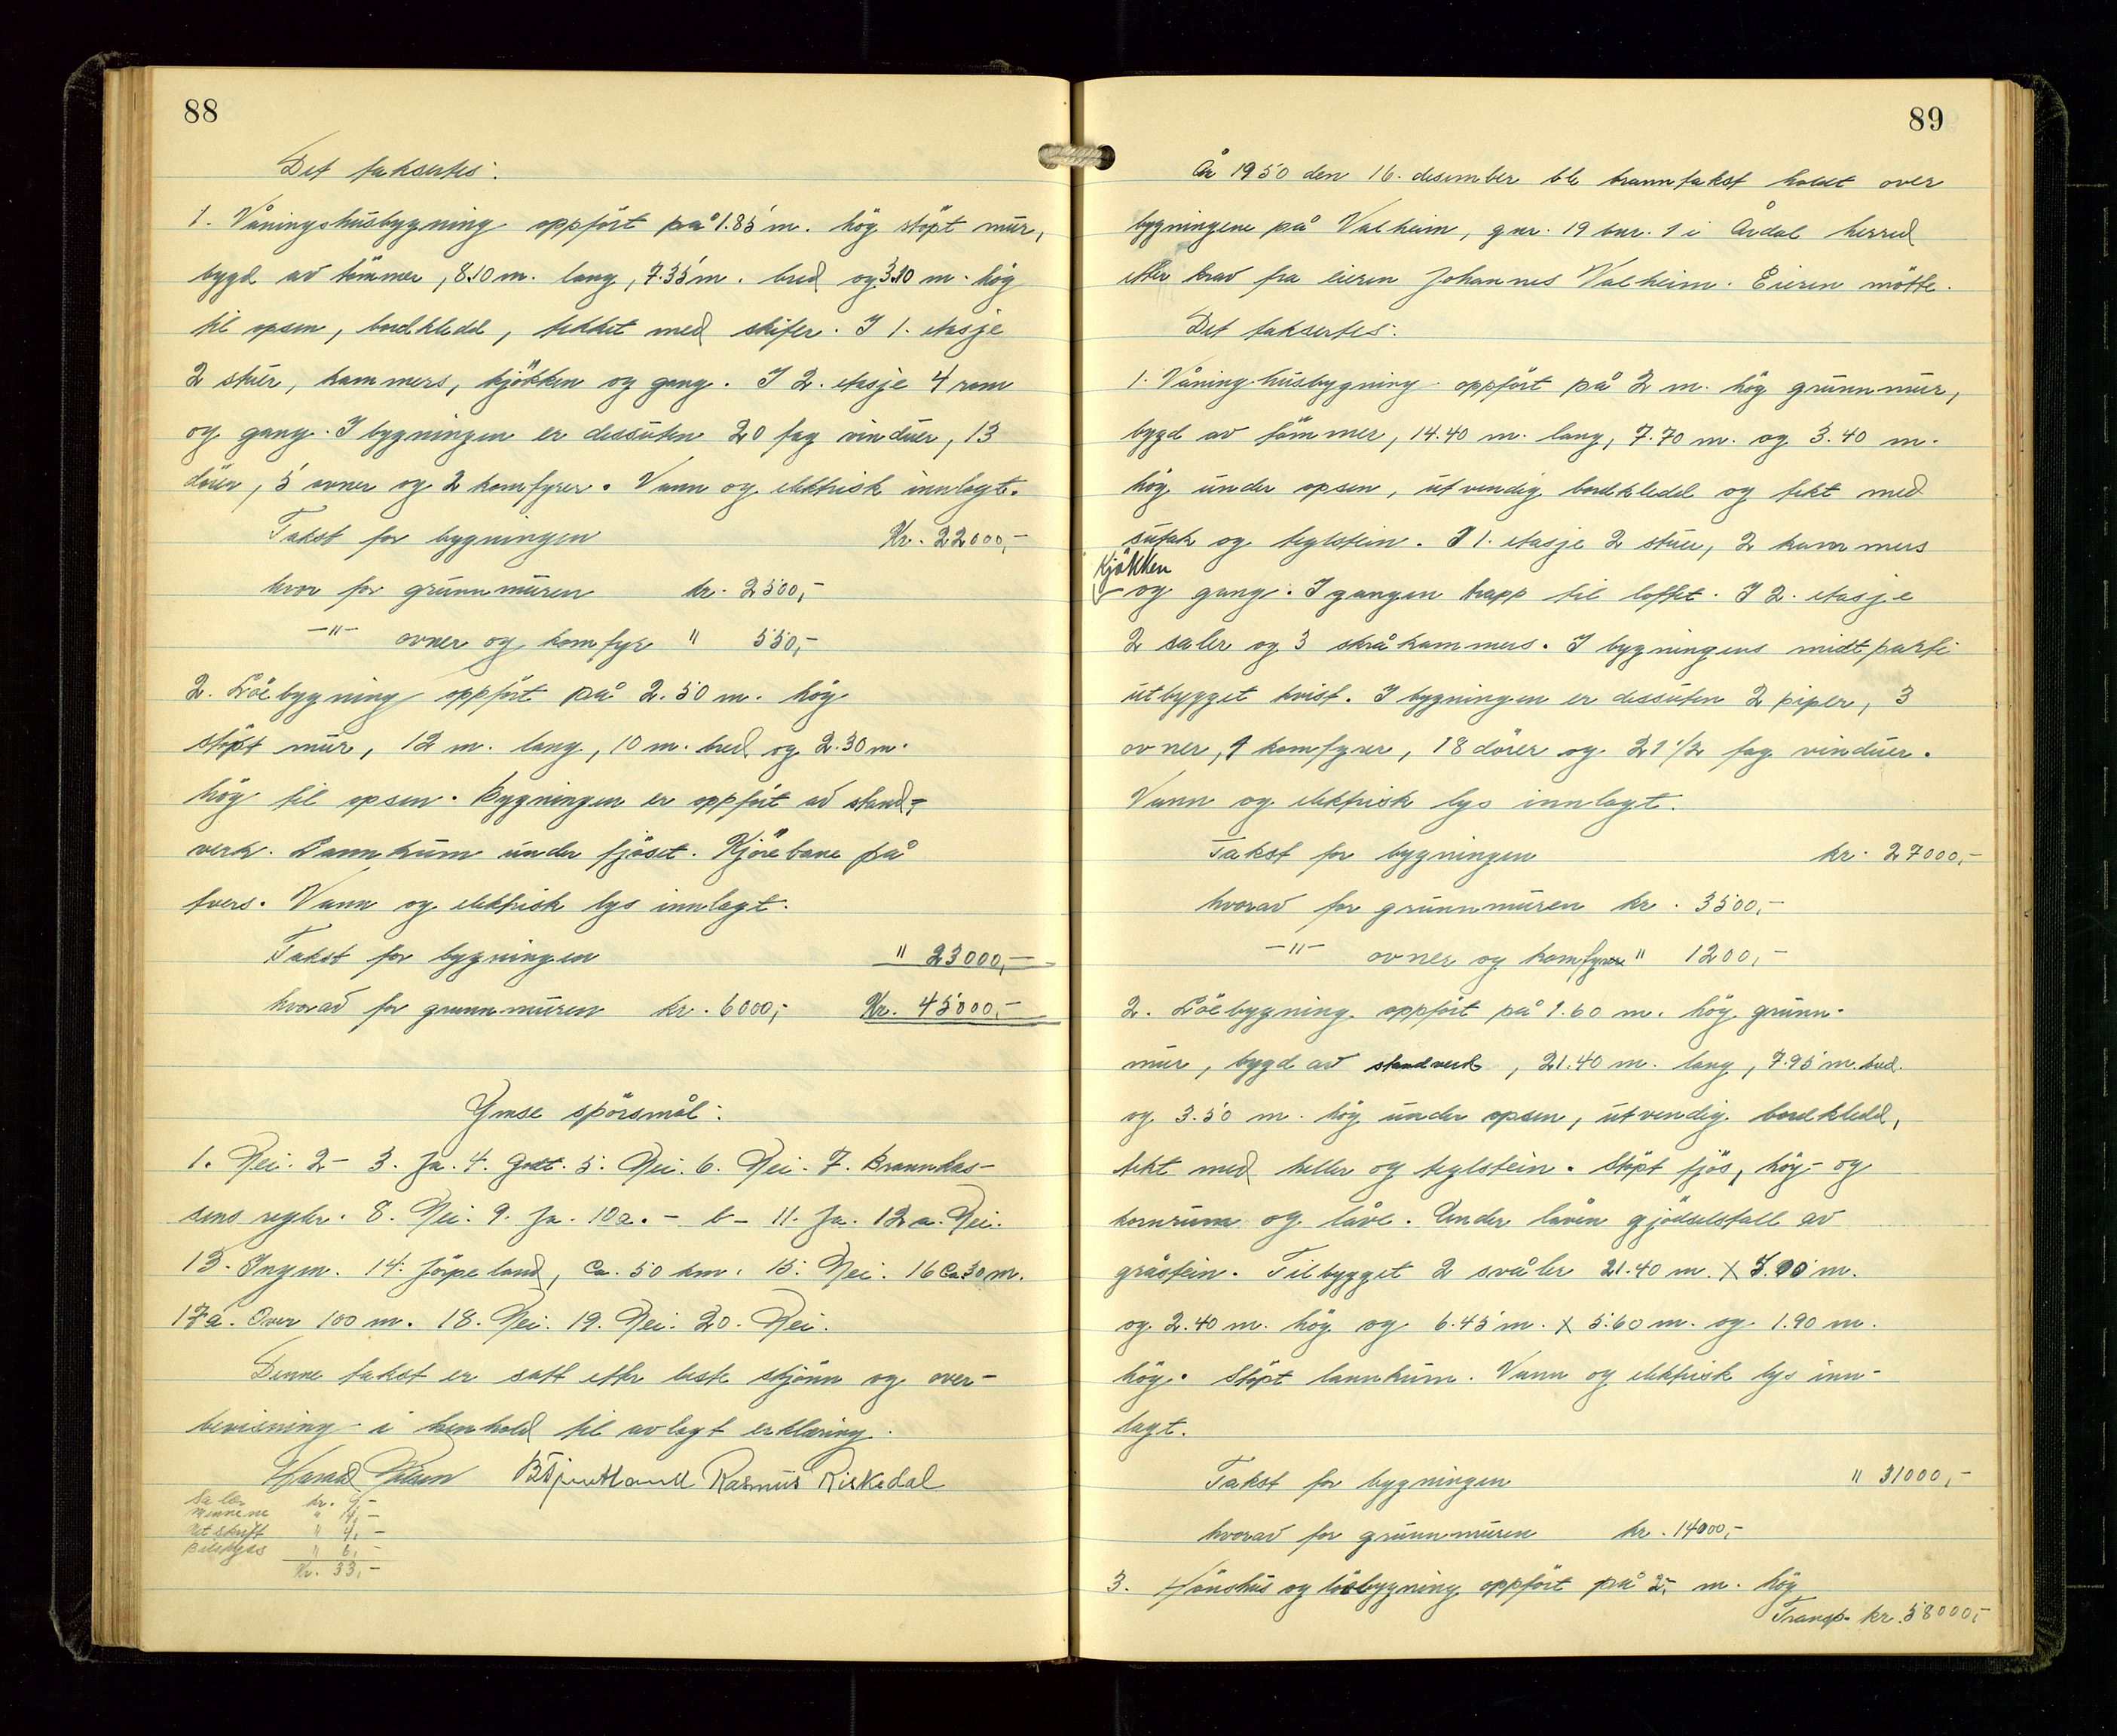 88
Det taksertes:
1. Våningshusbygning oppført på 1.85 m. høg støpt mur,
bygd av tømmer, 8.10 m. lang, 7.35 m. bred og 3.10 m. høg
til opsen, bordkledd, tekket med skifer. I 1. etasje
2 stuer, kammers, kjøkken og gang. I 2. etasje 4 rom
og gang. I bygningen er dessuten 20 fag vinduer, 13
dører, 5 ovner og 2 komfyrer. Vann og elektrisk innlagt.
Takst for bygningen Kr. 22000,-
hvor for grunnmuren kr. 2500,-
-"- ovner og komfyr " 550,-
2. Löebygning oppført på 2.50 m. høg
støpt mur, 12 m. lang, 10 m. bred og 2.30 m.
høg til opsen. Bygningen er oppført av stend-
verk. Lannkum under fjøset. Kjørebane på
tvers. Vann og elektrisk lys innlagt.
Takst for bygningen " 23000,-
hvorav for grunnmuren kr. 6000,- Kr. 45000,-
Ymse spørsmål:
1. Nei. 2 - 3. Ja. 4. Godt. 5. Nei. 6. Nei. 7. Brannkas-
sens regler. 8. Nei. 9. Ja. 10 a. - b - 11. Ja. 12 a. Nei.
13. Ingen. 14. Jørpeland, ca. 50 km. 15. Nei. 16 Ca 30 m.
17 a. Over 100 m. 18. Nei. 19. Nei. 20. Nei.
Denne takst er satt etter beste skjønn og over-
bevisning i henhold til avlagt erklæring.
Rasmus Riskedal
Salær kr. 9,-
Mennene
Utskrift " 4,-
Bilskyss " 6,-
Kr. 33,-
89
År 1950 den 16. desember ble branntakst holdt over
bygningene på Valheim, gnr. 19 bnr. 1 i Årdal herred
etter krav fra eieren Johannes Valheim. Eieren møtte.
Det taksertes:
1. Våninghusbygning oppført på 2 m. høg grunnmur,
bygd av tømmer, 14.40 m. lang, 7.70 m. og 3.40 m.
høg under opsen, utvendig bordkledd og tekt med
sutak og teglstein. I 1. etasje 2 stuer, 2 kammers
kjøkken
og gang. I gangen trapp til loftet. I 2. etasje
2 saler og 3 skråkammers. I bygningens midtparti
utbygget kvist. I bygningen er dessuten 2 piper, 3
ovner, 1 komfyrer, 18 dører og 21 1/2 fag vinduer.
Vann og elektrisk lys innlagt.
Takst for bygningen kr. 27000,-
hvorav for grunnmuren kr. 3500,-
-"- ovner og komfyrer " 1200,-
2. Löebygning oppført på 1.60 m. høg grunn-
mur, bygd av stendverk, 21.40 m. lang, 7.95 m. bred.
og 3.50 m. høg under opsen, utvendig bordkledd,
tekt med heller og teglstein. Støpt fjøs, høy- og
kornrum og låve. Under låven gjødselstall av
gråstein. Tilbygget 2 svaler 21.40 m. x 3.00 m.
og 2.40 m. høg og 6.45 m. x 5.60 m. og 1.90 m.
høg. Støpt lannkum. Vann og elektrisk lys inn-
lagt.
Takst for bygningen " 31000,-
hvorav for grunnmuren kr. 14000,-
3. Hønshus og löebygning oppført på 2,- m. høg
Transp. kr. 58000,-